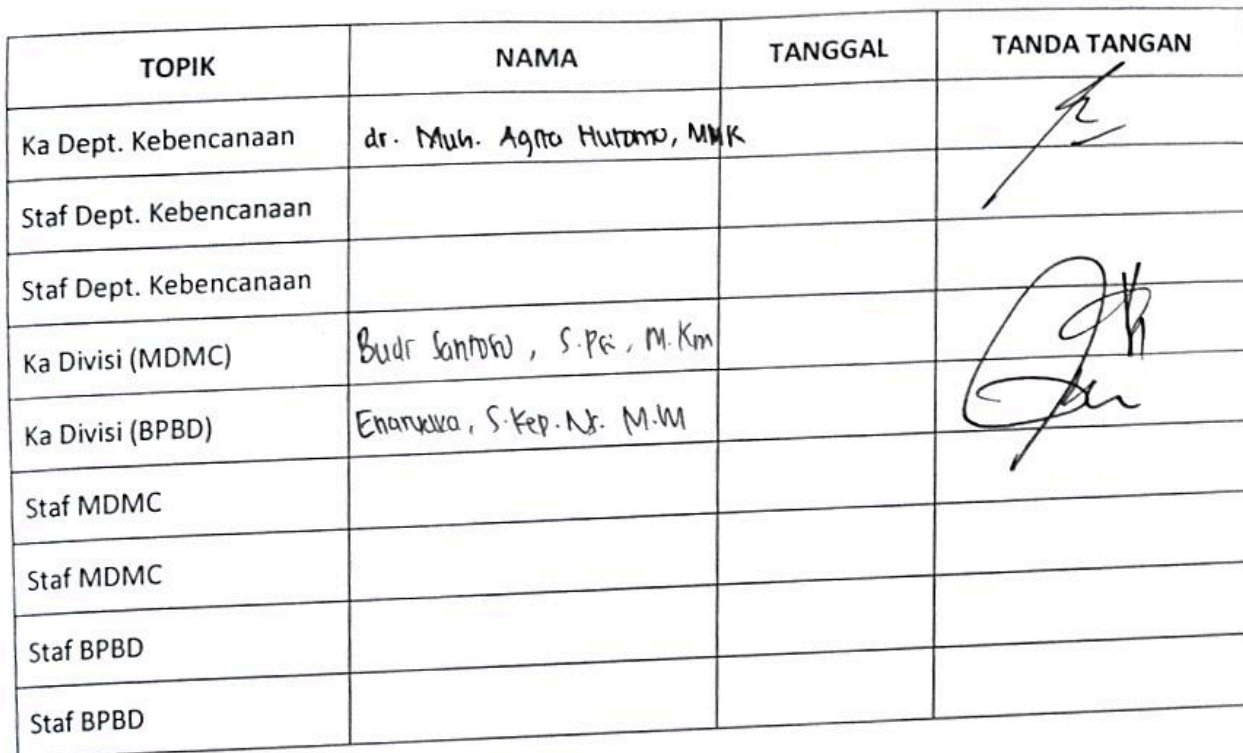 TOPIK NAMA TANGGAL TANDA TANGAN
Ka Dept. Kebencanaan dr. Muh. Agita Hutomo, MMR
Staf Dept. Kebencanaan
Staf Dept. Kebencanaan
Ka Divisi (MDMC) Budi Santoso, S.Psi, M.Km
Ka Divisi (BPBD) S.Kep.Ns. M.M
Staf MDMC
Staf MDMC
Staf BPBD
Staf BPBD